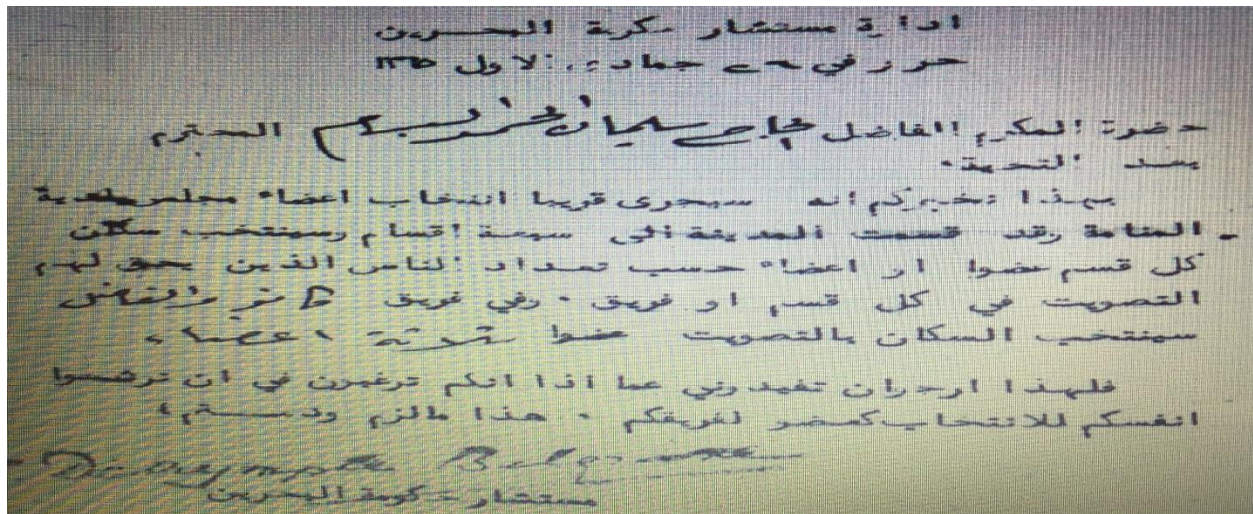 ادارة مستشار حكومة البحرين
حرر في ٢٩ جمادى الاول ١٣٥
حضرة المكرم الفاضل حاج سلمان المحترم
بعد التحية.
بهذا نخبركم انه سيجرى قريبا انتخاب اعضاء مجلس بلدية
المنامة وقد قسمت المدينة الى سبعة اقسام وسينتخب سكان
كل قسم عضوا او اعضاء حسب تعداد الناس الذين يحق لهم
التصويت في كل قسم او فريق . وفي فريق والفاضل
سينتخب السكان بالتصويت عضوا ثلاثة اعضاء
فلهذا ارجو ان تفيدوني عما اذا انكم ترغبون في ان ترشحوا
انفسكم للانتخاب كعضو لفريقكم . هذا مالزم ودمتم ،
Dalrymple Belgrave
مستشار حكومة البحرين